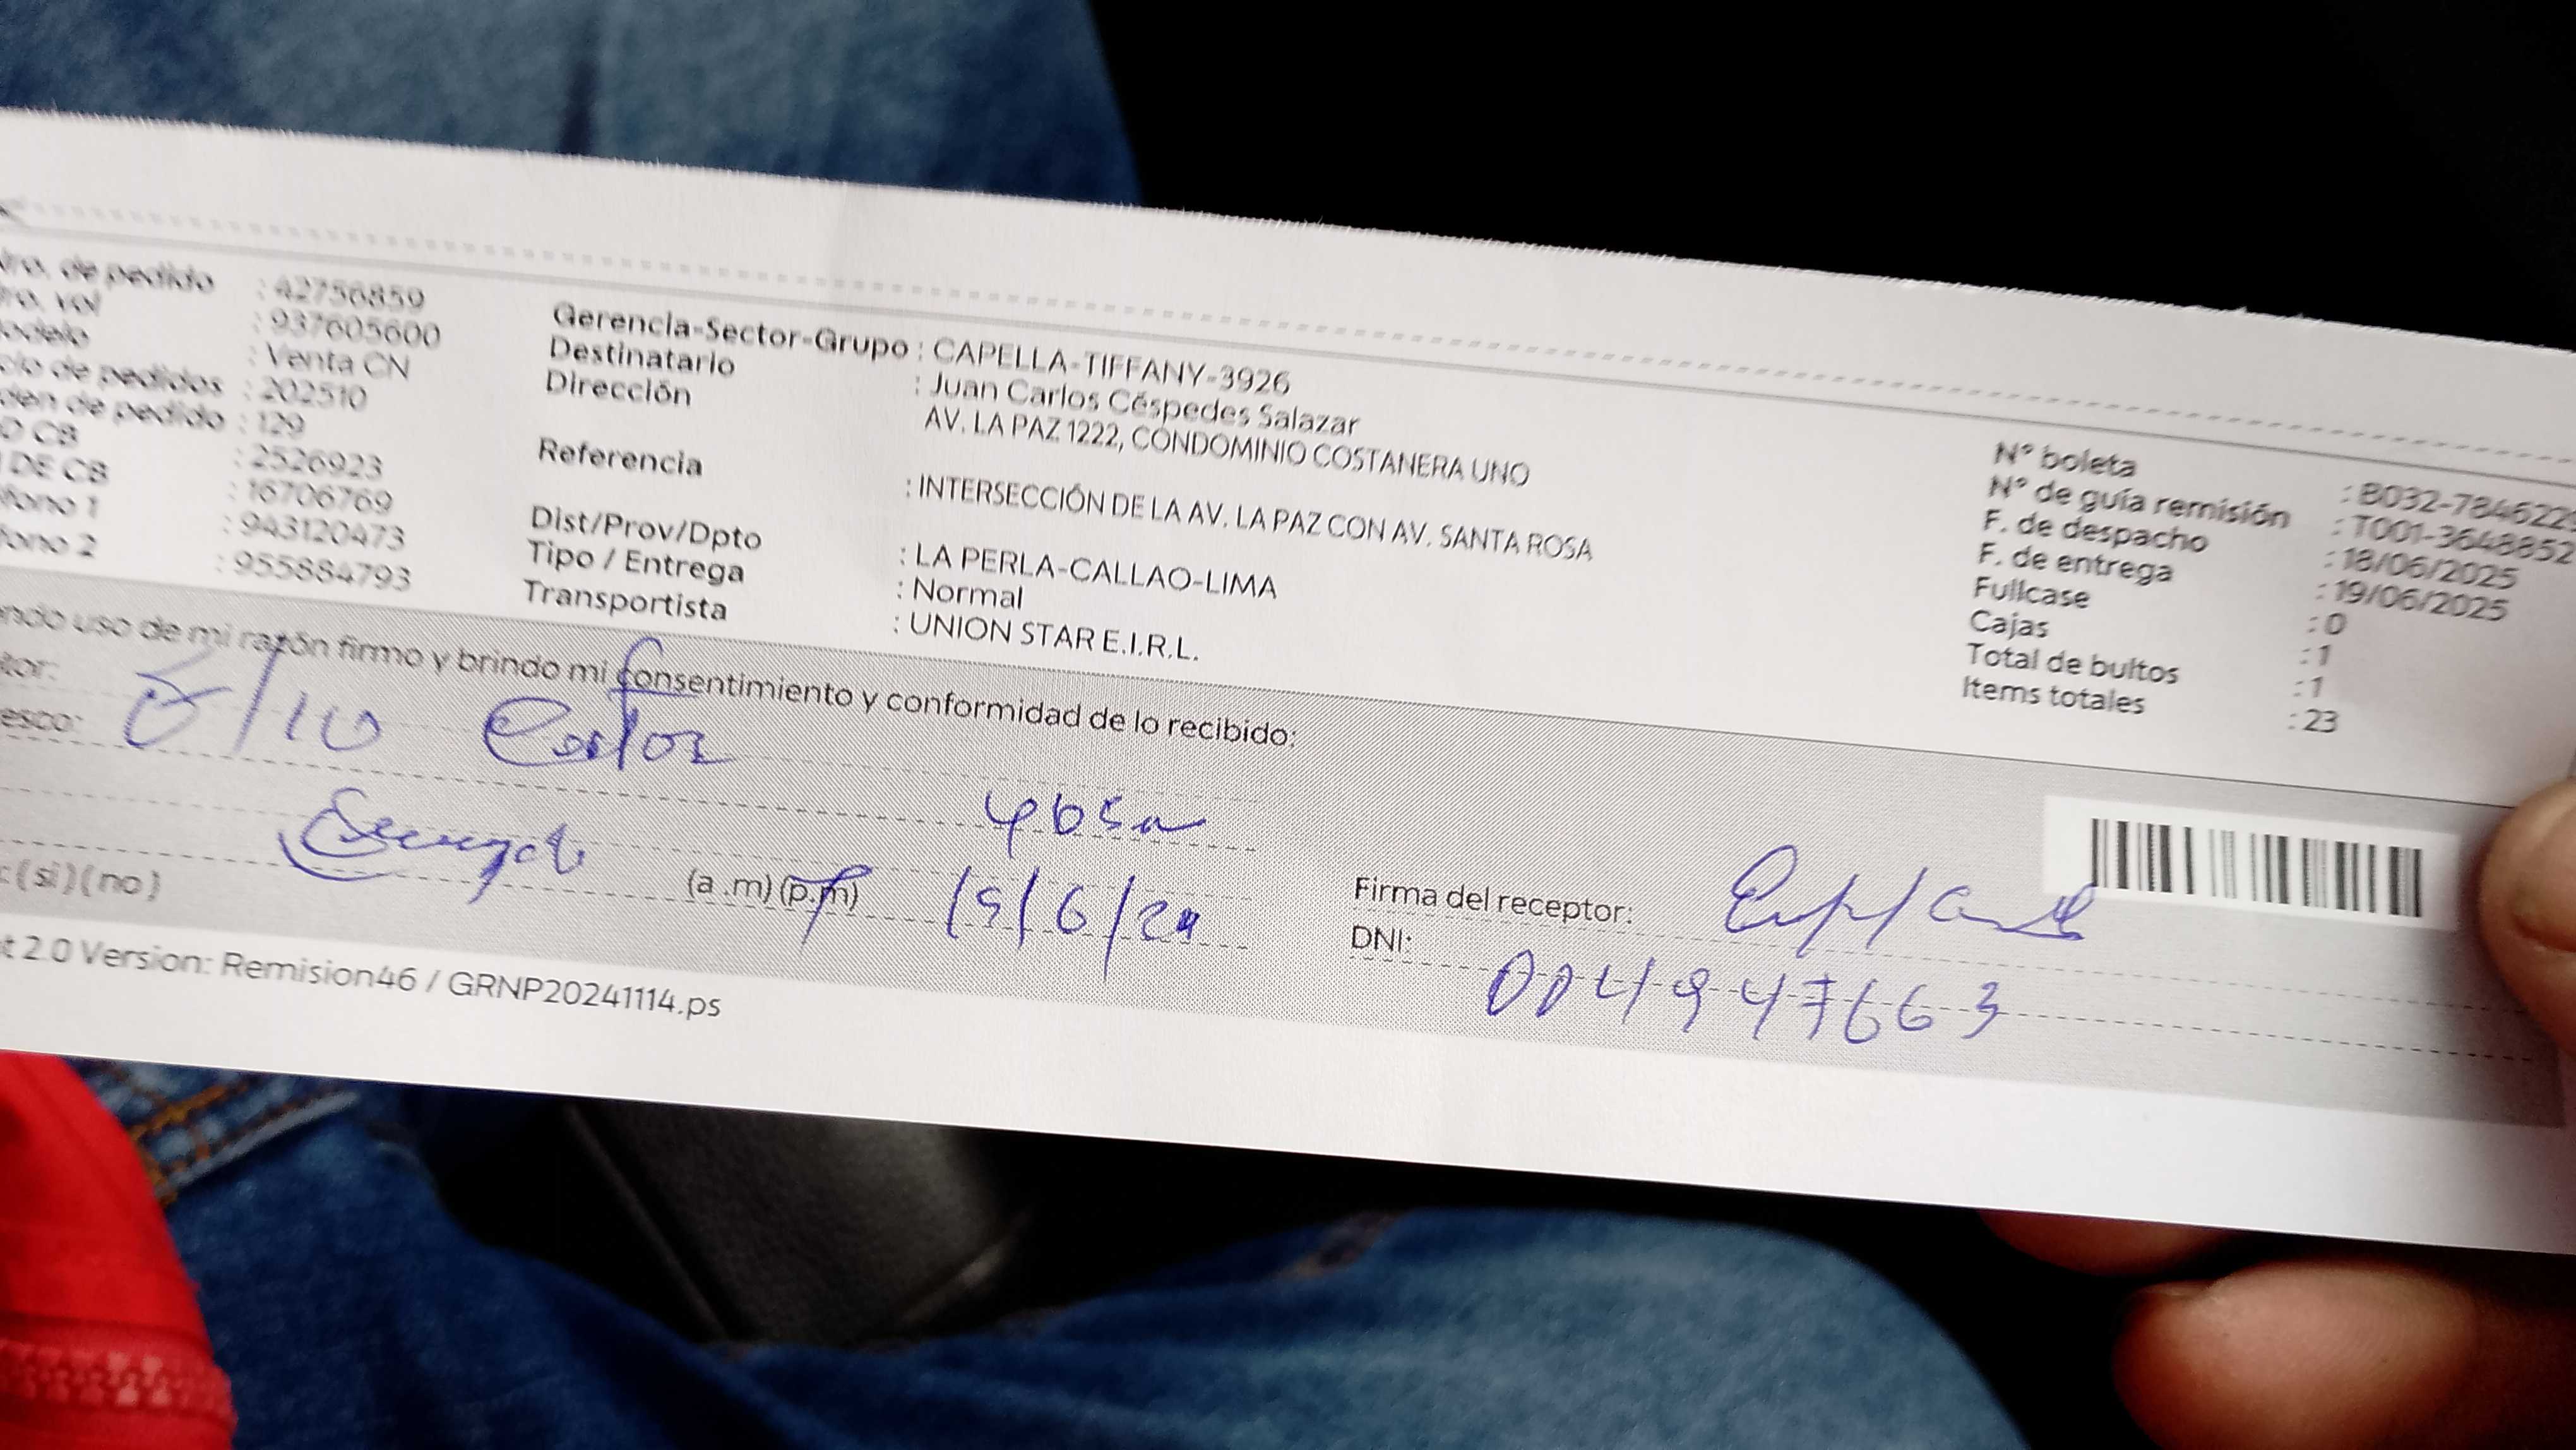 Nro. de pedido : 42756859
ro. vol : 937605600
odelo : Venta CN
clo de pedidos : 202510
den de pedido : 129
O CB : 2526923
DE CB : 16706769
fono 1 : 943120473
fono 2 : 955884793
Gerencia-Sector-Grupo : CAPELLA-TIFFANY-3926
Destinatario : Juan Carlos Céspedes Salazar
Dirección AV. LA PAZ 1222, CONDOMINIO COSTANERA UNO
Referencia : INTERSECCIÓN DE LA AV. LA PAZ CON AV. SANTA ROSA
Dist/Prov/Dpto : LA PERLA-CALLAO-LIMA
Tipo / Entrega : Normal
Transportista : UNION STAR E.I.R.L.
N° boleta : B032-784622
N° de guía remisión : T001-3648852
F. de despacho : 18/06/2025
F. de entrega : 19/06/2025
Fullcase : 0
Cajas : 1
Total de bultos : 1
Items totales : 23
ndo uso de mi razón firmo y brindo mi consentimiento y conformidad de lo recibido:
tor:
esco:
: (si) (no)
(a .m) (p.m)
Firma del receptor:
DNI: 004947663
t 2.0 Version: Remision46 / GRNP20241114.ps